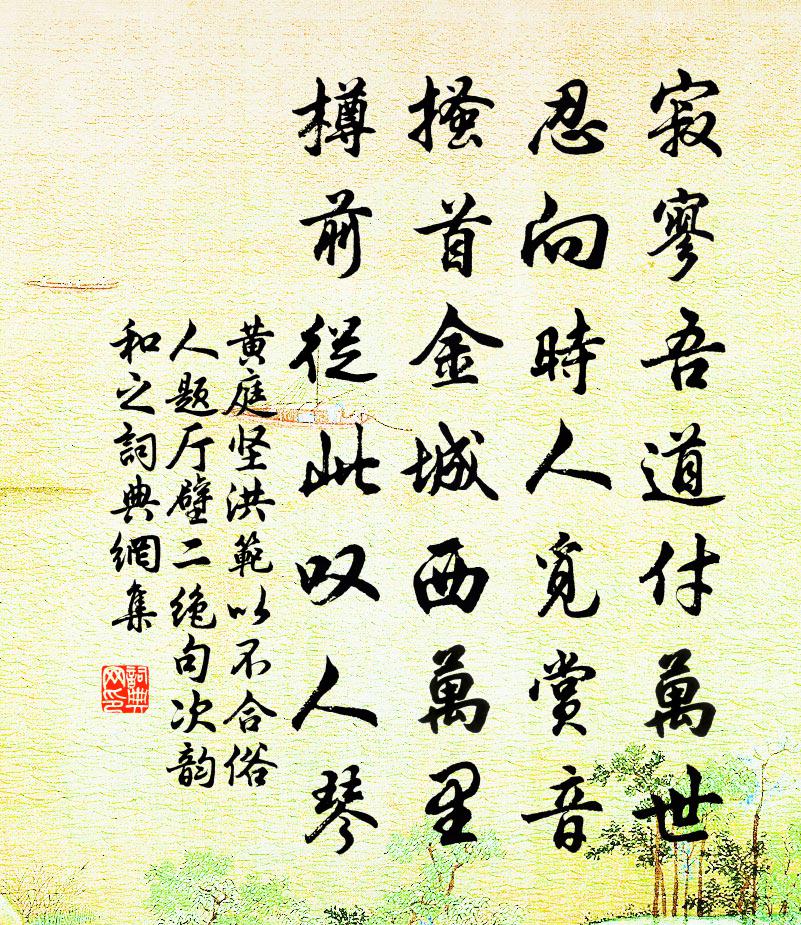 寂寥吾道付萬世
忍向時人覓賞音
搔首金城西萬里
樽前從此叹人琴
黄庭坚洪範以不合俗
人题厅壁二绝句次韵
和之詞典網集
詞典
网印